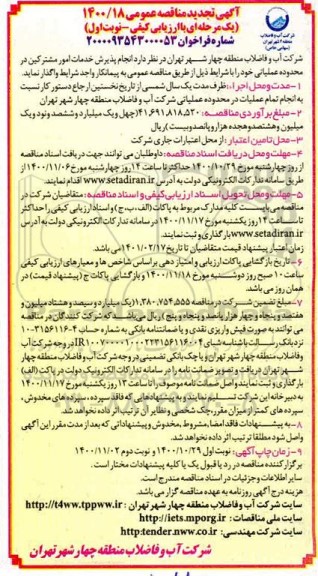 آگهی تجدید مناقصه عمومی ۱۴۰۰/۱۸
(یک مرحله‌ای با ارزیابی کیفی - نوبت اول)
شماره فراخوان ۲۰۰۰۰۹۳۵۴۳۰۰۰۰۵۳
شرکت آب و فاضلاب
منطقه ۴ شهر تهران
(سهامی خاص)
شرکت آب و فاضلاب منطقه چهار شهر تهران در نظر دارد انجام پذیرش خدمات امور مشترکین در
محدوده عملیاتی خود را با شرایط ذیل از طریق مناقصه عمومی به پیمانکار واجد شرایط واگذار نماید.
۱- مدت و محل اجرا: ظرف مدت یک سال شمسی از تاریخ نخستین ارجاع دستور کار نسبت
به انجام تمام عملیات در محدوده عملیاتی شرکت آب و فاضلاب منطقه چهار شهر تهران
۲- مبلغ برآوردی مناقصه: ۴۱,۶۹۱,۸۱۸,۵۲۰ (چهل و یک میلیارد و ششصد و نود و یک
میلیون و هشتصد و هجده هزار و پانصد و بیست) ریال
۳- محل تامین اعتبار: از محل اعتبارات جاری شرکت
۴- مهلت و محل دریافت اسناد مناقصه: داوطلبان می توانند جهت دریافت اسناد مناقصه
از روز چهارشنبه مورخ ۱۴۰۰/۱۰/۲۹ حداکثر تا ساعت ۱۴ روز چهارشنبه مورخ ۱۴۰۰/۱۱/۰۶ از
طریق سامانه تدارکات الکترونیکی دولت به آدرس www.setadiran.ir اقدام نمایند.
۵- مهلت و محل تحویل اسناد ارزیابی کیفی و اسناد مناقصه: متقاضیان شرکت در
مناقصه می بایست کلیه مدارک مربوط به پاکات (الف، ب، ج) و اسناد ارزیابی کیفی را حداکثر
تا ساعت ۱۴ روز یکشنبه مورخ ۱۴۰۰/۱۱/۱۷ در سامانه تدارکات الکترونیکی دولت به آدرس
www.setadiran.ir بارگذاری و ثبت نمایند.
زمان اعتبار پیشنهاد قیمت متقاضیان تا تاریخ ۱۴۰۱/۰۲/۱۷ می باشد.
۶- تاریخ بازگشایی پاکات ارزیابی و امتیاز دهی بر اساس شاخص ها و معیارهای ارزیابی کیفی
ساعت ۱۰ صبح روز دوشنبه مورخ ۱۴۰۰/۱۱/۱۸ و بازگشایی پاکات ج (پیشنهاد قیمت) در
همان روز می باشد.
۷- مبلغ تضمین شرکت در مناقصه ۱,۳۸۰,۷۵۴,۵۵۵ (یک میلیارد و سیصد و هشتاد میلیون و
هفتصد و پنجاه و چهار هزار و پانصد و پنجاه و پنج) ریال می باشد که شرکت کنندگان در مناقصه
می توانند به صورت فیش واریزی نقدی و یا ضمانتنامه بانکی به شماره حساب ۴-۳۱۵۶۱۱۶-۱۰
نزد بانک رسالت با شناسه شبای در وجه شرکت آب
و فاضلاب منطقه چهار شهر تهران و یا چک بانکی تضمینی در وجه شرکت آب و فاضلاب منطقه چهار
شهر تهران دریافت و تصویر ضمانت نامه را در سامانه تدارکات الکترونیکی دولت در پاکت (الف)
بارگذاری و ثبت نمایند و اصل ضمانت نامه موصوف را تا ساعت ۱۳ روز یکشنبه مورخ ۱۴۰۰/۱۱/۱۷
به دبیرخانه این شرکت تسلیم نمایند و به پیشنهادهایی که فاقد سپرده، سپرده های مخدوش،
سپرده های کمتر از میزان مقرر، چک شخصی و نظایر آن ترتیب اثر داده نخواهد شد.
۸- به پیشنهادات فاقد امضا، مشروط، مخدوش و پیشنهاداتی که بعد از مدت مقرر این آگهی
واصل شود مطلقا ترتیب اثر داده نخواهد شد.
۹- زمان چاپ آگهی: نوبت اول ۱۴۰۰/۱۰/۲۹ و نوبت دوم ۱۴۰۰/۱۱/۰۲
برگزار کننده مناقصه در رد یا قبول یک یا کلیه پیشنهادات مختار است.
سایر اطلاعات و جزئیات در اسناد مناقصه مندرج است.
هزینه درج آگهی روزنامه به عهده مناقصه گزار می باشد.
سایت شرکت آب و فاضلاب منطقه چهار شهر تهران: http://t4ww.tppww.ir
سایت ملی مناقصات: http://iets.mporg.ir
سایت شرکت مهندسی: http:tender.nww.co.ir
شرکت آب و فاضلاب منطقه چهار شهر تهران